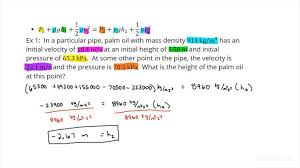 • P₁ + ρgh₁ + ½ρv₁² = P₂ + ρgh₂ + ½ρv₂²
Ex 1: In a particular pipe, palm oil with mass density 914 kg/m³ has an
initial velocity of 18.4 m/s at an initial height of 5.50 m and initial
pressure of 65.3 kPa. At some other point in the pipe, the velocity is
22.1 m/s and the pressure is 70.5 kPa. What is the height of the palm oil
at this point?
-23900 kg/ms² = 8960 kg/m²s² (h₂)
8960 kg/m²s² 8960 kg/m²s²
-2.67 m = h₂